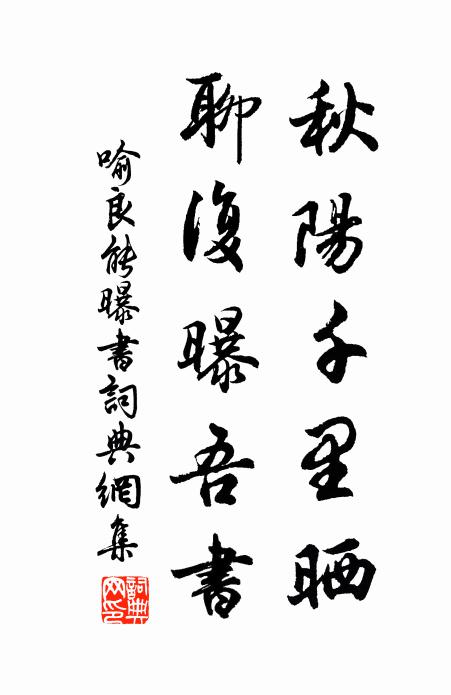 秋陽千里晒
聊復曝吾書
喻良能曝書詞典網集
詞典網印